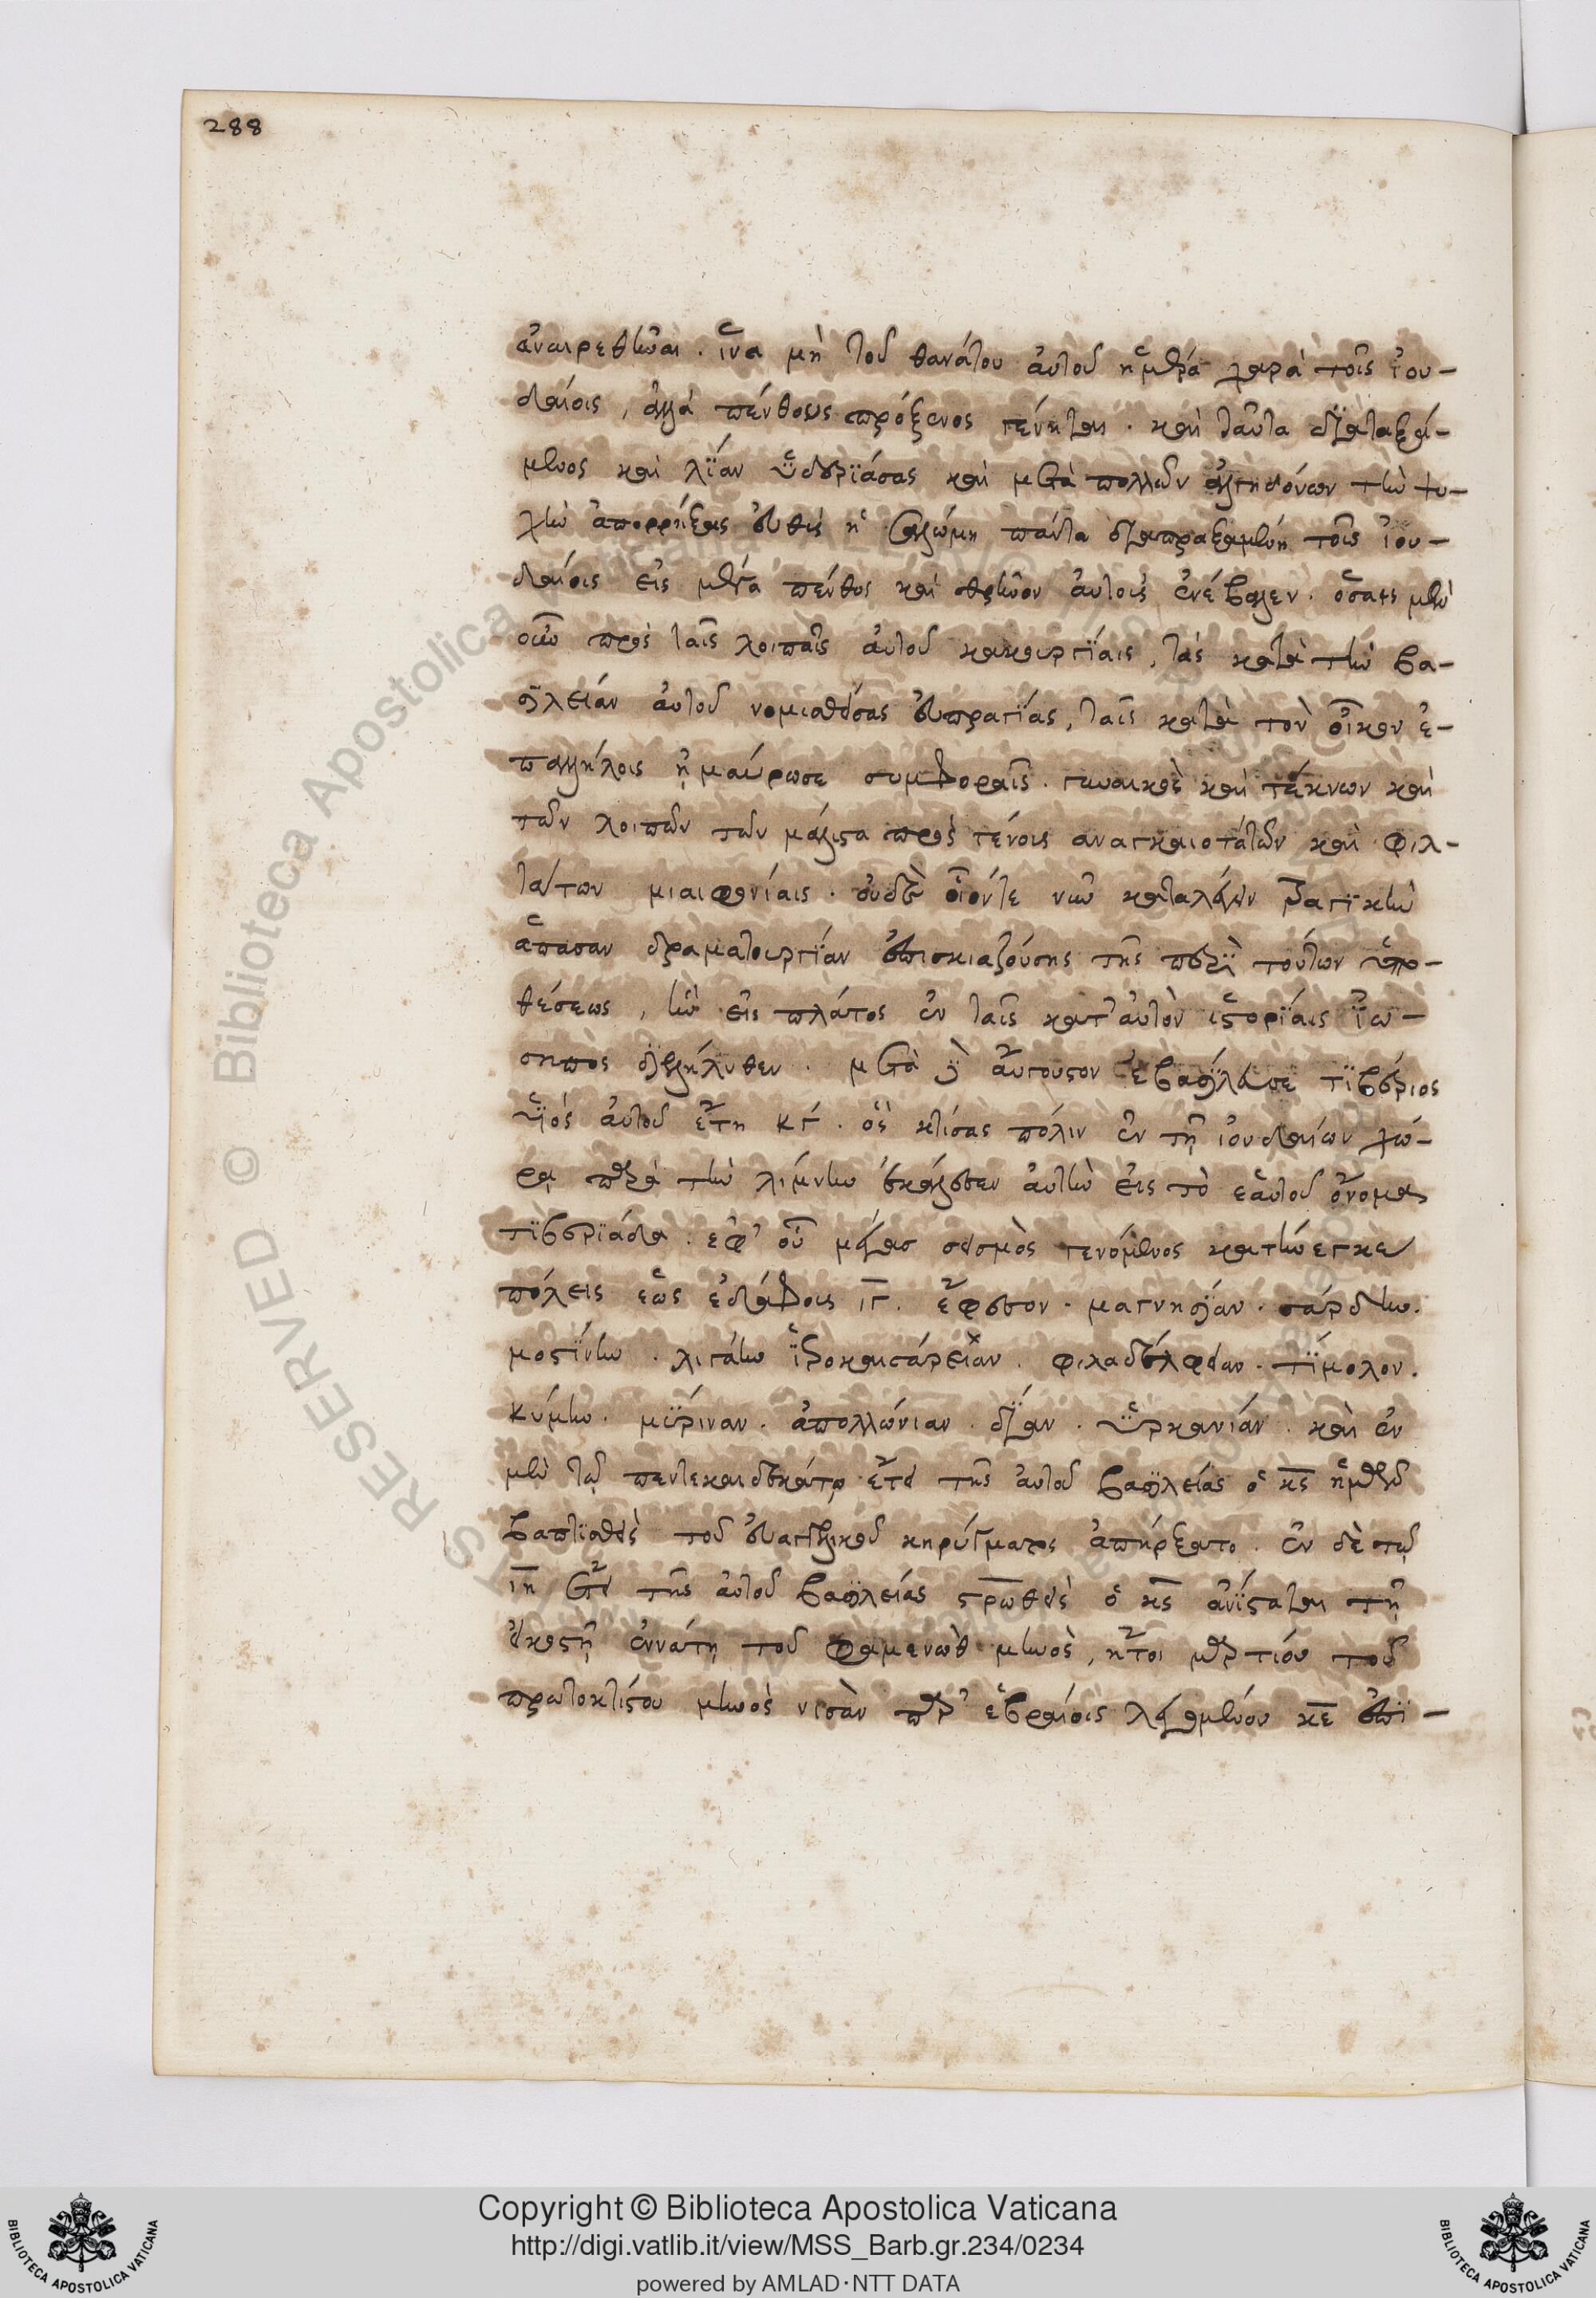 288
ἀναιρεθῆναι. ἵνα μὴ τοῦ θανάτου αὐτοῦ ἡ ἡμέρα χαρὰ τοῖς ἰου-
δαίοις, ἀλλὰ πένθους πρόξενος γένηται. καὶ ταῦτα διαταξά-
μενος καὶ λίαν ὑδεριάσας καὶ μετὰ πολλῶν ἀλγηδόνων τὴν ψυ-
χὴν ἀπορρήξας εὐθὺς ἡ σαλώμη πάντα διαπραξαμένη τοῖς ἰου-
δαίοις εἰς μέγα πένθος καὶ θρῆνον αὐτοὺς ἐνέβαλεν. ὅστις μὲν
οὖν πρὸς ταῖς λοιπαῖς αὐτοῦ κακουργίαις, τὰς κατὰ τὴν βα-
σιλείαν αὐτοῦ νομισθείσας εὐπραγίας, ταῖς κατὰ τὸν οἶκον ἐ-
παλλήλοις ἠμαύρωσε συμφοραῖς. γυναικὸς καὶ τέκνων καὶ
τῶν λοιπῶν τῶν μάλιστα πρὸς γένους ἀναγκαιοτάτων καὶ φιλ-
τάτων μιαιφονίαις. οὐδὲ οἷόντε νῦν καταλέγειν τραγικὴν
ἅπασαν δραματουργίαν ἐπισκιαζούσης τῆς περὶ τούτων ὑπο-
θέσεως, ἣν εἰς πλάτος ἐν ταῖς κατ' αὐτὸν ἱστορίαις ἰώ-
σηπος διελήλυθεν. μετὰ δὲ αὔγουστον ἐβασίλευσε τιβέριος
υἱὸς αὐτοῦ ἔτη κγ. ὃς κτίσας πόλιν ἐν τῇ ἰουδαίων χώ-
ρᾳ παρὰ τὴν λίμνην ἐκάλεσεν αὐτὴν εἰς τὸ ἑαυτοῦ ὄνομα
τιβεριάδα. ἐφ' οὗ μέγας σεισμὸς γενόμενος κατήνεγκε
πόλεις ἕως ἐδάφους ιγ. ἔφεσον. μαγνησίαν. σάρδην.
μοστίνην. λιγάην ἱεροκαισάρειαν. φιλαδέλφειαν. τίμολον.
κύμην. μύριναν. ἀπολλώνιαν. δίαν. ὑρκανίαν. καὶ ἐν
μὲν τῷ πεντεκαιδεκάτῳ ἔτει τῆς αὐτοῦ βασιλείας ὁ κς ἡμῶν
βαπτισθεὶς τοῦ εὐαγγελικοῦ κηρύγματος ἀπήρξατο. ἐν δὲ τῷ
ιη ἔτει τῆς αὐτοῦ βασιλείας στρωθεὶς ὁ κς ἀνίσταται τῇ
εἰκοστῇ ἐννάτῃ τοῦ φαμενὼθ μηνὸς, ἤτοι μαρτίου τοῦ
πρωτοκτίστου μηνὸς νισὰν παρ' ἑβραίοις λεγομένου κε ἐπι-